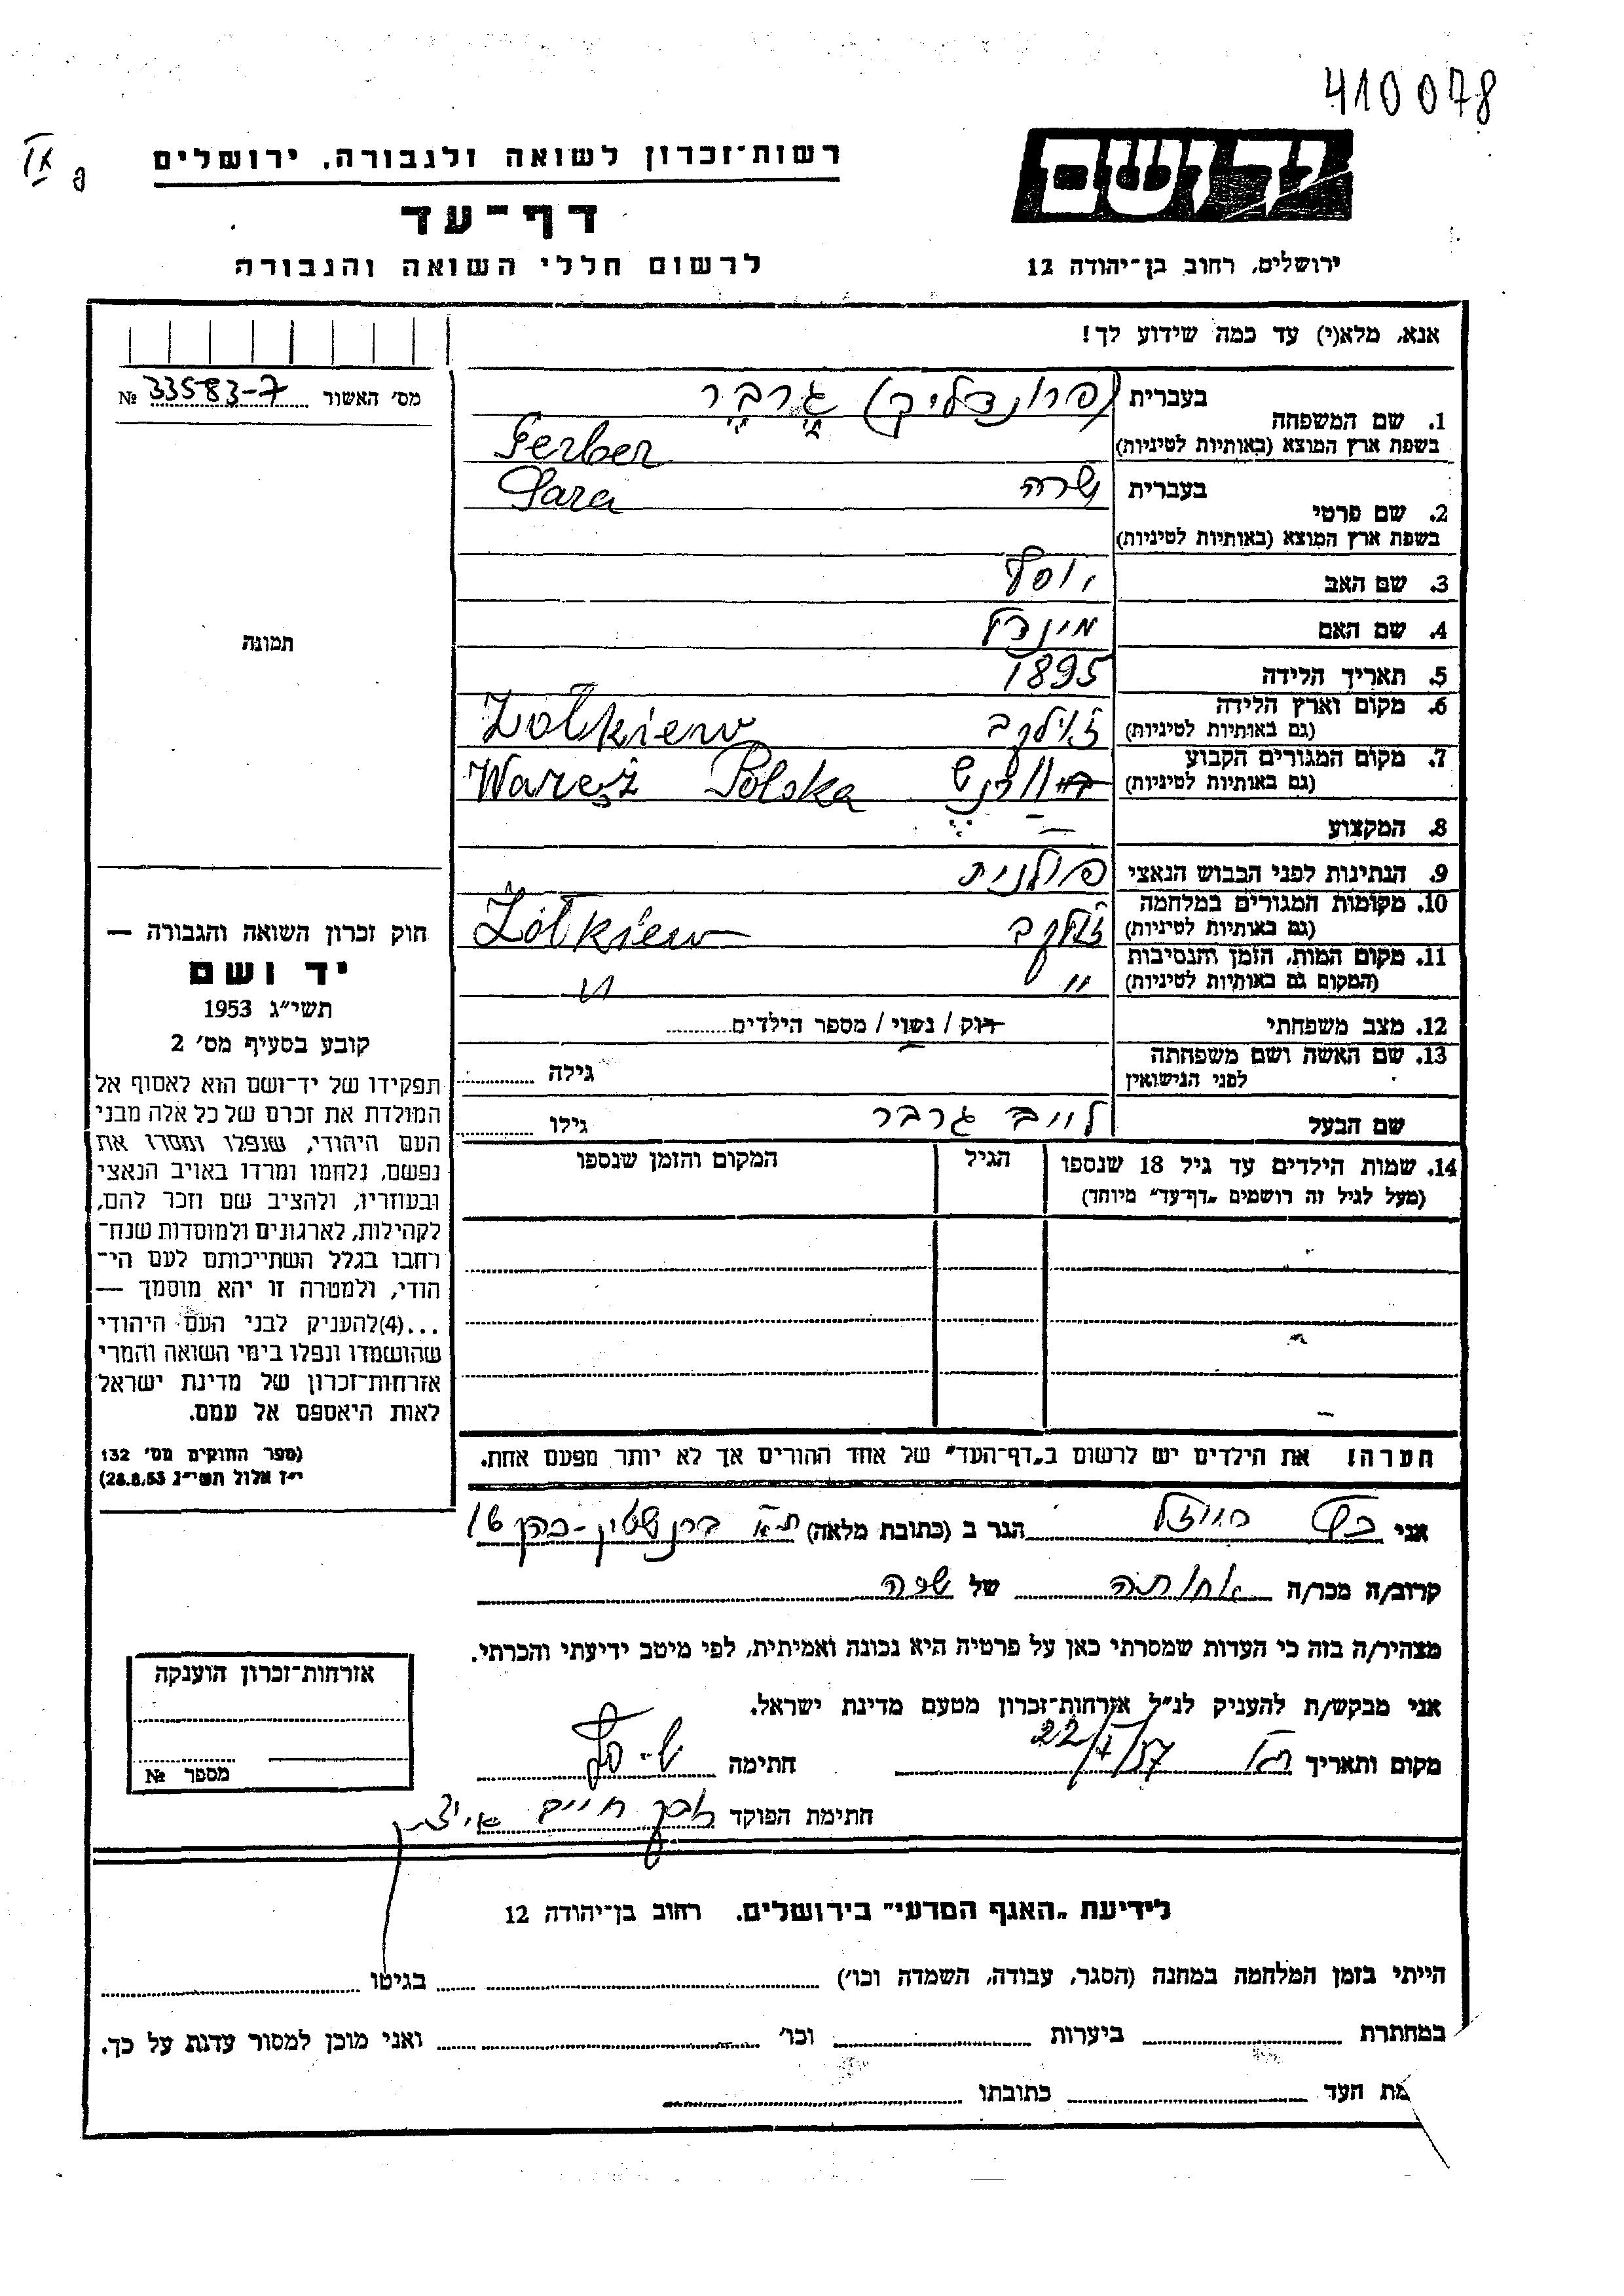 410078
יד ושם
רשות־זכרון לשואה ולגבורה. ירושלים
דף־עד
ירושלים, רחוב בן־יהודה 12
לרשום חללי השואה והגבורה
אנא, מלא(י) עד כמה שידוע לך!
מס׳ האשור 33583-7 №
בעברית (פרונדליק) גרבר
1. שם המשפחה
בשפת ארץ המוצא (באותיות לטיניות) Gerber
בעברית שרה Sara
2. שם פרטי
בשפת ארץ המוצא (באותיות לטיניות)
3. שם האב יוסף
4. שם האם מינדל
תמונה
5. תאריך הלידה 1895
6. מקום וארץ הלידה
(גם באותיות לטיניות) זולקב Zołkiew
7. מקום המגורים הקבוע
(גם באותיות לטיניות) Waręż Polska
8. המקצוע
9. הנתינות לפני הכבוש הנאצי פולנית
10. מקומות המגורים במלחמה
(גם באותיות לטיניות) זולקב Żółkiew
11. מקום המות, הזמן והנסיבות
(המקום גם באותיות לטיניות) " "
12. מצב משפחתי רוק / נשוי / מספר הילדים
13. שם האשה ושם משפחתה
לפני הנישואין גילה
שם הבעל לייב גרבר גילו
14. שמות הילדים עד גיל 18 שנספו הגיל המקום והזמן שנספו
(מעל לגיל זה רושמים „דף־עד" מיוחד)
חוק זכרון השואה והגבורה —
יד ושם
תשי״ג 1953
קובע בסעיף מס׳ 2
תפקידו של יד־ושם הוא לאסוף אל
המולדת את זכרם של כל אלה מבני
העם היהודי, שנפלו ומסרו את
נפשם, נלחמו ומרדו באויב הנאצי
ובעוזריו, ולהציב שם וזכר להם,
לקהילות, לארגונים ולמוסדות שנח־
רחבו בגלל השתייכותם לעם הי־
הודי, ולמטרה זו יהא מוסמך —
...(4)להעניק לבני העם היהודי
שהושמדו ונפלו בימי השואה והמרי
אזרחות־זכרון של מדינת ישראל
לאות היאספם אל עמם.
(ספר החוקים מס׳ 132
י״ז אלול תשי״ג 28.8.53)
הערה! את הילדים יש לרשום ב„דף־העד" של אחד ההורים אך לא יותר מפעם אחת.
אני הגר ב (כתובת מלאה) ת״א ברנשטין-כהן 16
קרוב/ה מכר/ה אחותה של שרה
מצהיר/ה בזה כי העדות שמסרתי כאן על פרטיה היא נכונה ואמיתית, לפי מיטב ידיעתי והכרתי.
אני מבקש/ת להעניק לנ״ל אזרחות־זכרון מטעם מדינת ישראל.
מקום ותאריך 22/ /57 חתימה
חתימת הפוקד חיים
אזרחות־זכרון הוענקה
מספר №
לידיעת „האגף המדעי" בירושלים. רחוב בן־יהודה 12
הייתי בזמן המלחמה במחנה (הסגר, עבודה, השמדה וכו׳) בגיטו
במחתרת ביערות וכו׳ ואני מוכן למסור עדות על כך.
מת העד כתובתו